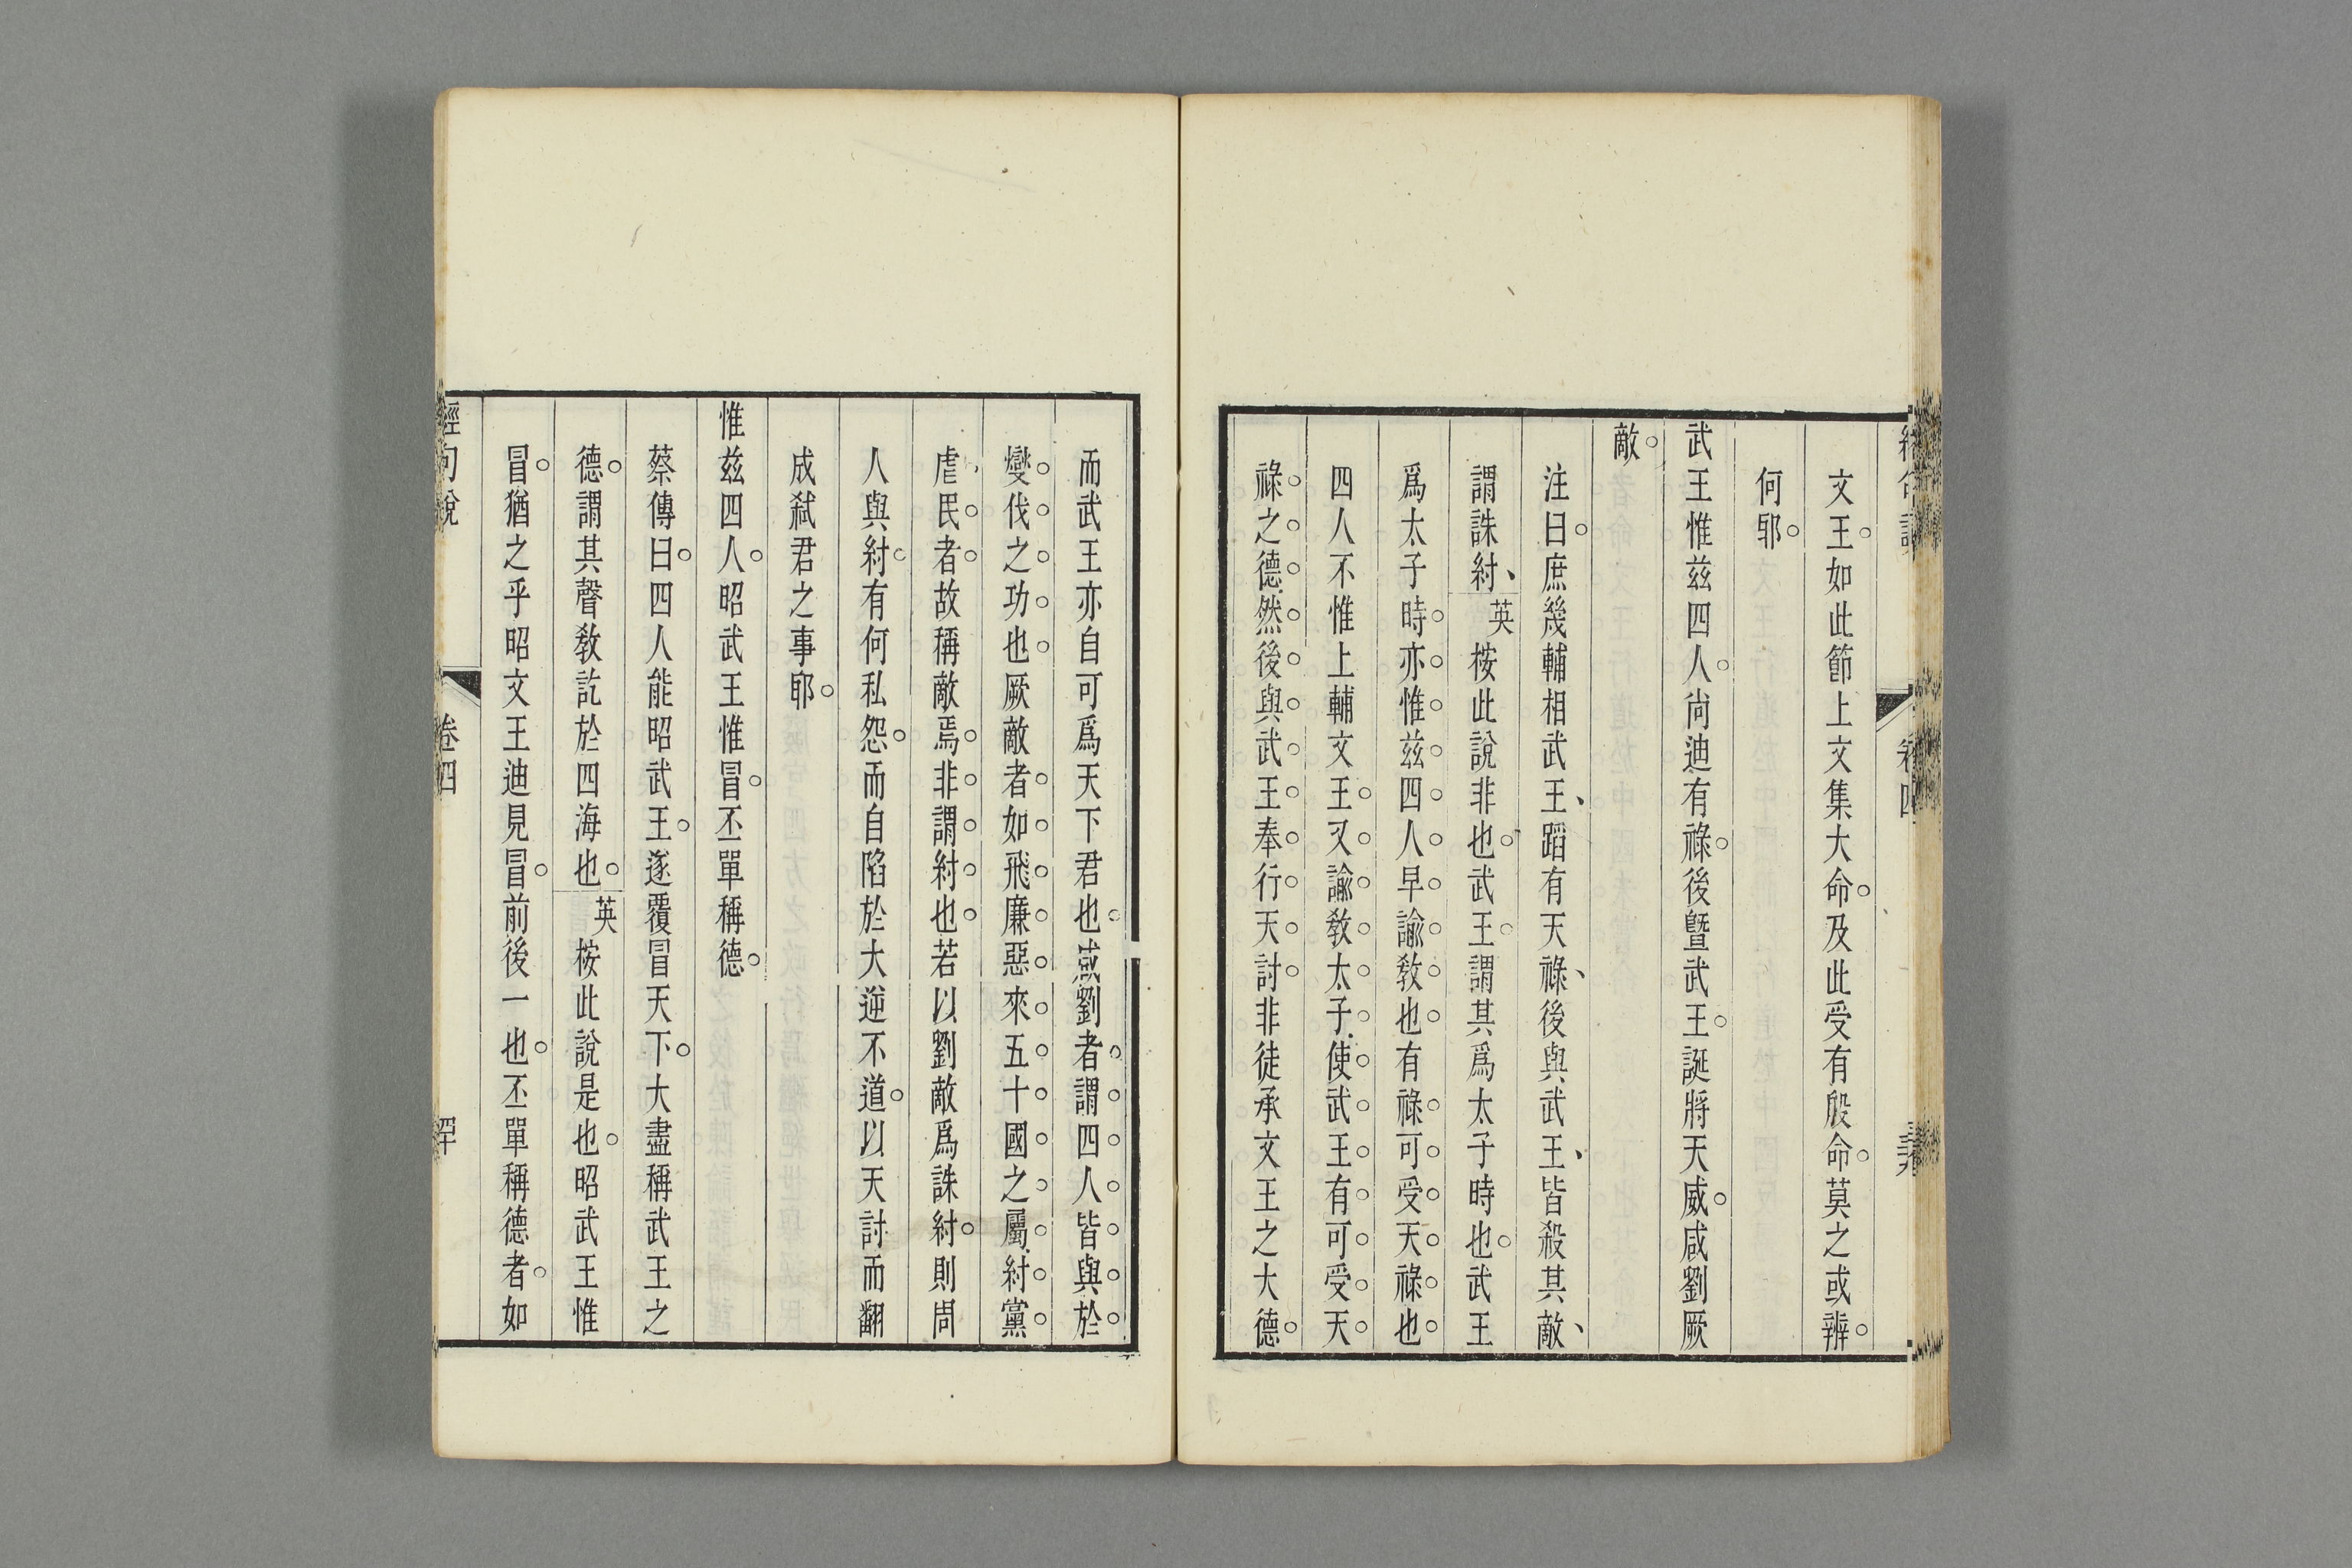 文王如此節上文集大命及此受有殷命莫之或辨
何耶
武王惟兹四人尚迪有祿後暨武王誕將天威咸劉厥
敵
注曰庶幾輔相武王蹈有天祿後與武王皆殺其敵
謂誅紂英按此說非也武王謂其爲太子時也武王
爲太子時亦惟兹四人早諭敎也有祿可受天祿也
四人不惟上輔文王又諭敎太子使武王有可受天
祿之德然後與武王奉行天討非徒承文王之大德
而武王亦自可爲天下君也咸劉者謂四人皆與於
燮伐之功也厥敵者如飛廉惡來五十國之屬紂黨
虐民者故稱敵焉非謂紂也若以劉敵爲誅紂則周
人與紂有何私怨而自陷於大逆不道以天討而翻
成弑君之事耶
惟兹四人昭武王惟冒丕單稱德
蔡傳曰四人能昭武王遂覆冒天下大盡稱武王之
德謂其聲敎訖於四海也英按此說是也昭武王惟
冒猶之乎昭文王迪見冒前後一也丕單稱德者如
經句說 卷四